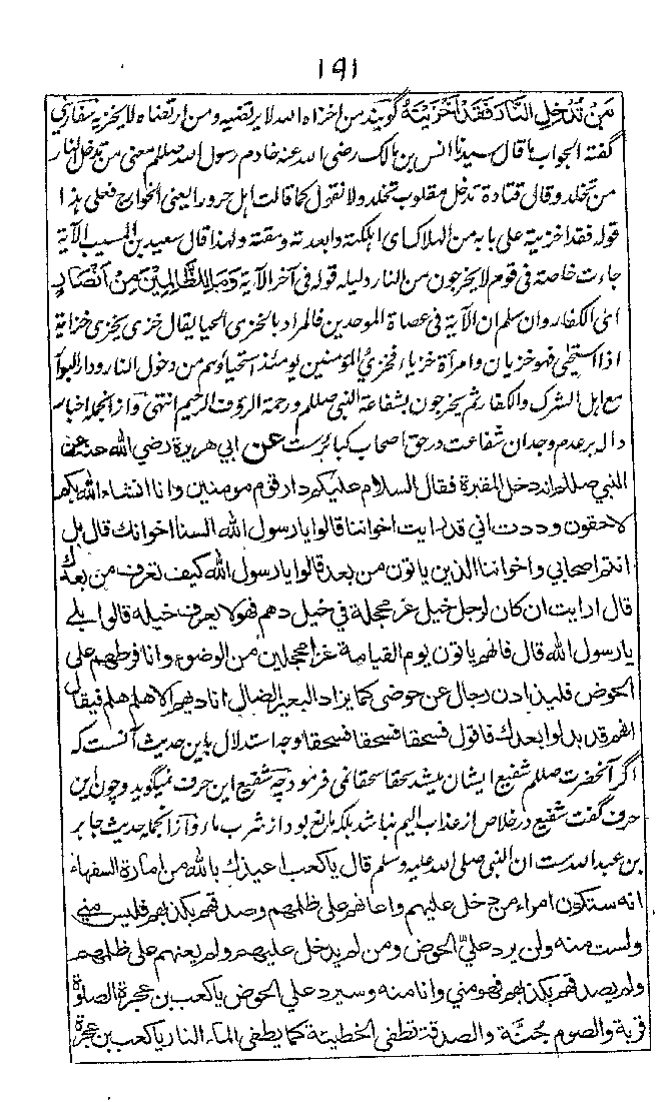 191
مَنْ تُدْخِلِ النَّارَ فَقَدْ اَخْزَيْتَهُ گویند من اخزاه الله لا یرتضیه ومن ارتضاه لا یخزیه سفاری
گفته الجواب ما قال سیدنا انس بن مالک رضی الله عنه خادم رسول الله صللم معنی من تدخل النار
من تخلد وقال قتادة تدخل مقلوب تخلد ولا نقول کما قالت اهل حرورا یعنی الخوارج فعلی هذا
قوله فقد اخزیته علی بابه من الهلاک ای اهلکته وابعدته ومقته ولهذا قال سعید بن المسیب الآیة
جاءت خاصة فی قوم لا یخرجون من النار دلیله قوله فی آخر الآیة وَمَا لِلظّٰلِمِیْنَ مِنْ اَنْصَارٍ
ای الکفار وان سلم ان الآیة فی عصاة الموحدین فالمراد بالخزی الحیا یقال خزی یخزی خزایة
اذا استحیی فهو خزیان وامرأة خزیاء فخزی المؤمنین یومئذ استحیاؤهم من دخول النار ودار البوار
مع اهل الشرک والکفار ثم یخرجون بشفاعة النبی صللم ورحمة الرؤف الرحیم انتهی وازانجمله اخبار
داله بر عدم وجدان شفاعت در حق اصحاب کبائرست عن ابی هریرة رضی الله عنه
النبی صللم انه دخل المقبرة فقال السلام علیکم دار قوم مومنین وانا انشاء الله بکم
لاحقون وددت انی قد رایت اخواننا قالوا یا رسول الله السنا اخوانک قال بل
انتم اصحابی واخواننا الذین یاتون من بعد قالوا یا رسول الله کیف تعرف من بعدک
قال ارایت ان کان لرجل خیل غر محجلة فی خیل دهم فهو لا یعرف خیله قالوا بلے
یا رسول الله قال فانهم یاتون یوم القیامة غرا محجلین من الوضوء وانا فرطهم علی
الحوض فلیذادن رجال عن حوضی کما یزاد البعیر الضال انادیهم الا هلم هلم فیقال
انهم قد بدلوا بعدک فاقول فسحقا فسحقا فسحقا وجه استدلال باین حدیث آنست که
اگر آنحضرت صللم شفیع ایشان میشد سحقا سحقا نمی فرمود چه شفیع این حرف نمیگوید وچون این
حرف گفت شفیع در خلاص از عذاب الیم نباشد بلکه مانع بود از شرب ماء وازانجمله حدیث جابر
بن عبد الله ست ان النبی صلی الله علیه وسلم قال یا کعب اعیذک بالله من امارة السفهاء
انه ستکون امراء من دخل علیهم واعانهم علی ظلمهم وصدقهم بکذبهم فلیس منی
ولست منه ولن یرد علی الحوض ومن لم یدخل علیهم ولم یعنهم علی ظلمهم
ولم یصدقهم بکذبهم فهو منی وانا منه وسیرد علی الحوض یا کعب بن عجرة الصلوة
قربة والصوم جُنَّة والصدقة تطفی الخطیئة کما یطفی الماء النار یا کعب بن عجرة